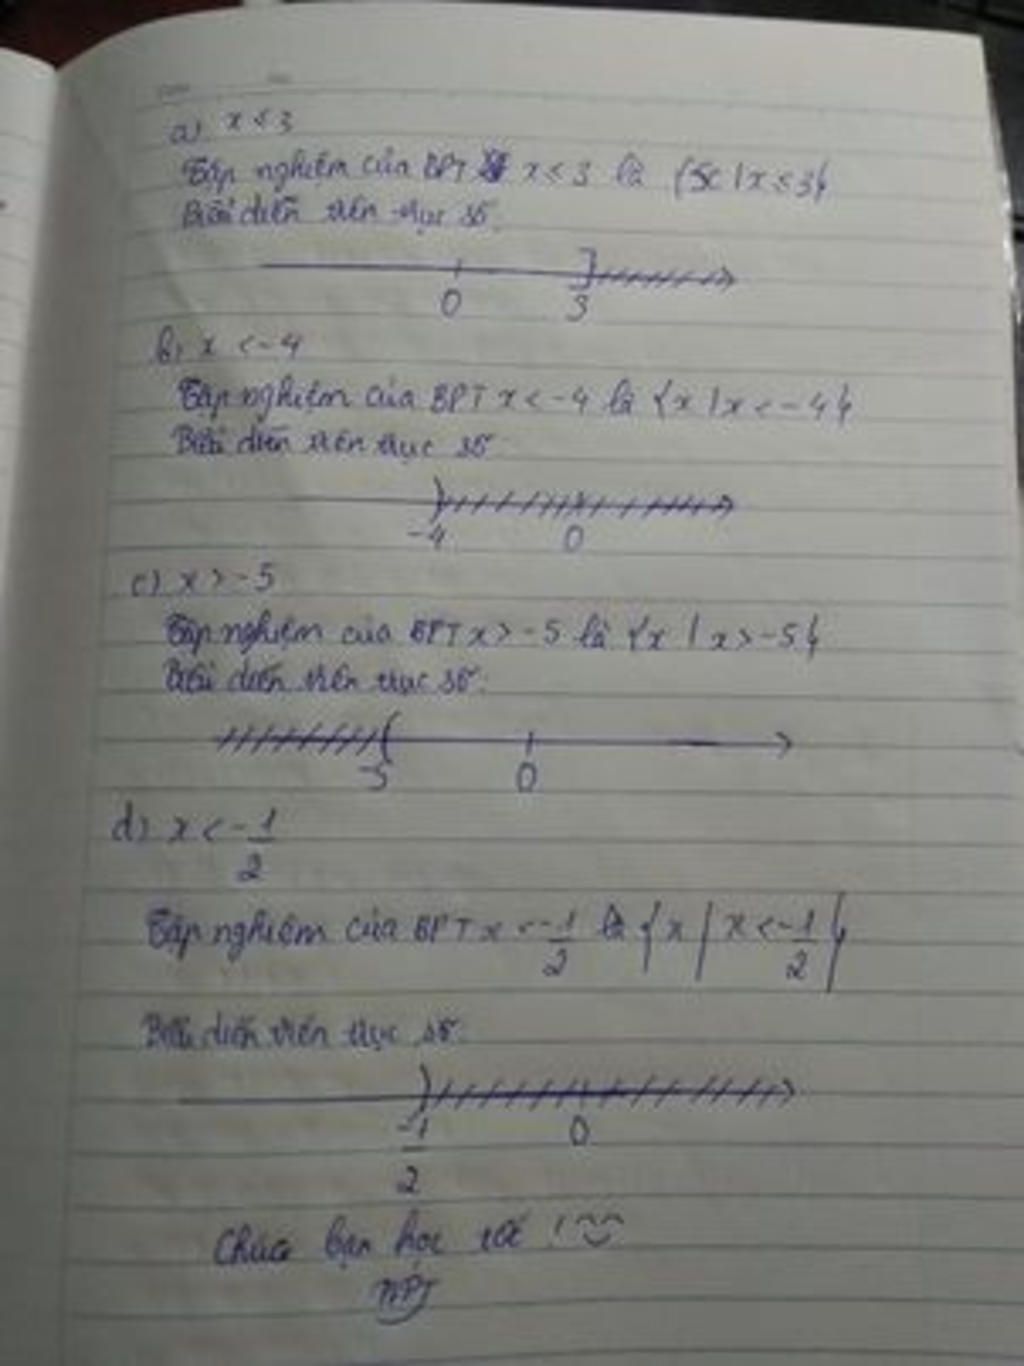 a) x ≤ 3
Tập nghiệm của BPT x ≤ 3 là {x | x ≤ 3}
Biểu diễn trên trục số:
0 3
b) x < -4
Tập nghiệm của BPT x < -4 là {x | x < -4}
Biểu diễn trên trục số
-4 0
c) x > -5
Tập nghiệm của BPT x > -5 là {x | x > -5}
Biểu diễn trên trục số:
-5 0
d) x < -1/2
Tập nghiệm của BPT x < -1/2 là {x | x < -1/2}
Biểu diễn trên trục số:
-1/2 0
Chúc bạn học tốt !